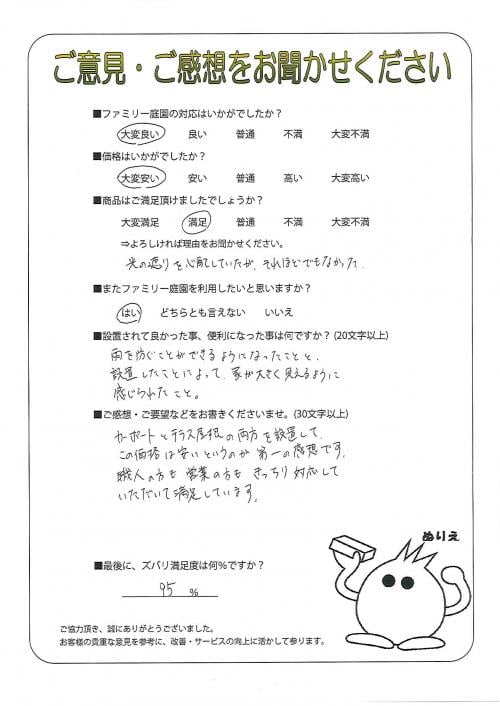 ご意見・ご感想をお聞かせください
■ファミリー庭園の対応はいかがでしたか？
大変良い 良い 普通 不満 大変不満
■価格はいかがでしたか？
大変安い 安い 普通 高い 大変高い
■商品はご満足頂けましたでしょうか？
大変満足 満足 普通 不満 大変不満
⇒よろしければ理由をお聞かせください。
光の遮りを心配していたが、それほどでもなかった．
■またファミリー庭園を利用したいと思いますか？
はい どちらとも言えない いいえ
■設置されて良かった事、便利になった事は何ですか？(20文字以上)
雨を防ぐことができるようになったことと、
設置したことによって、家が大きく見えるように
感じられたこと。
■ご感想・ご要望などをお書きくださいませ。(30文字以上)
カーポートとテラス屋根の両方を設置して、
この価格は安いというのが第一の感想です。
職人の方も営業の方もきっちり対応して
いただいて満足しています。
ぬりえ
■最後に、ズバリ満足度は何％ですか？
95 %
ご協力頂き、誠にありがとうございました。
お客様の貴重な意見を参考に、改善・サービスの向上に活かして参ります。